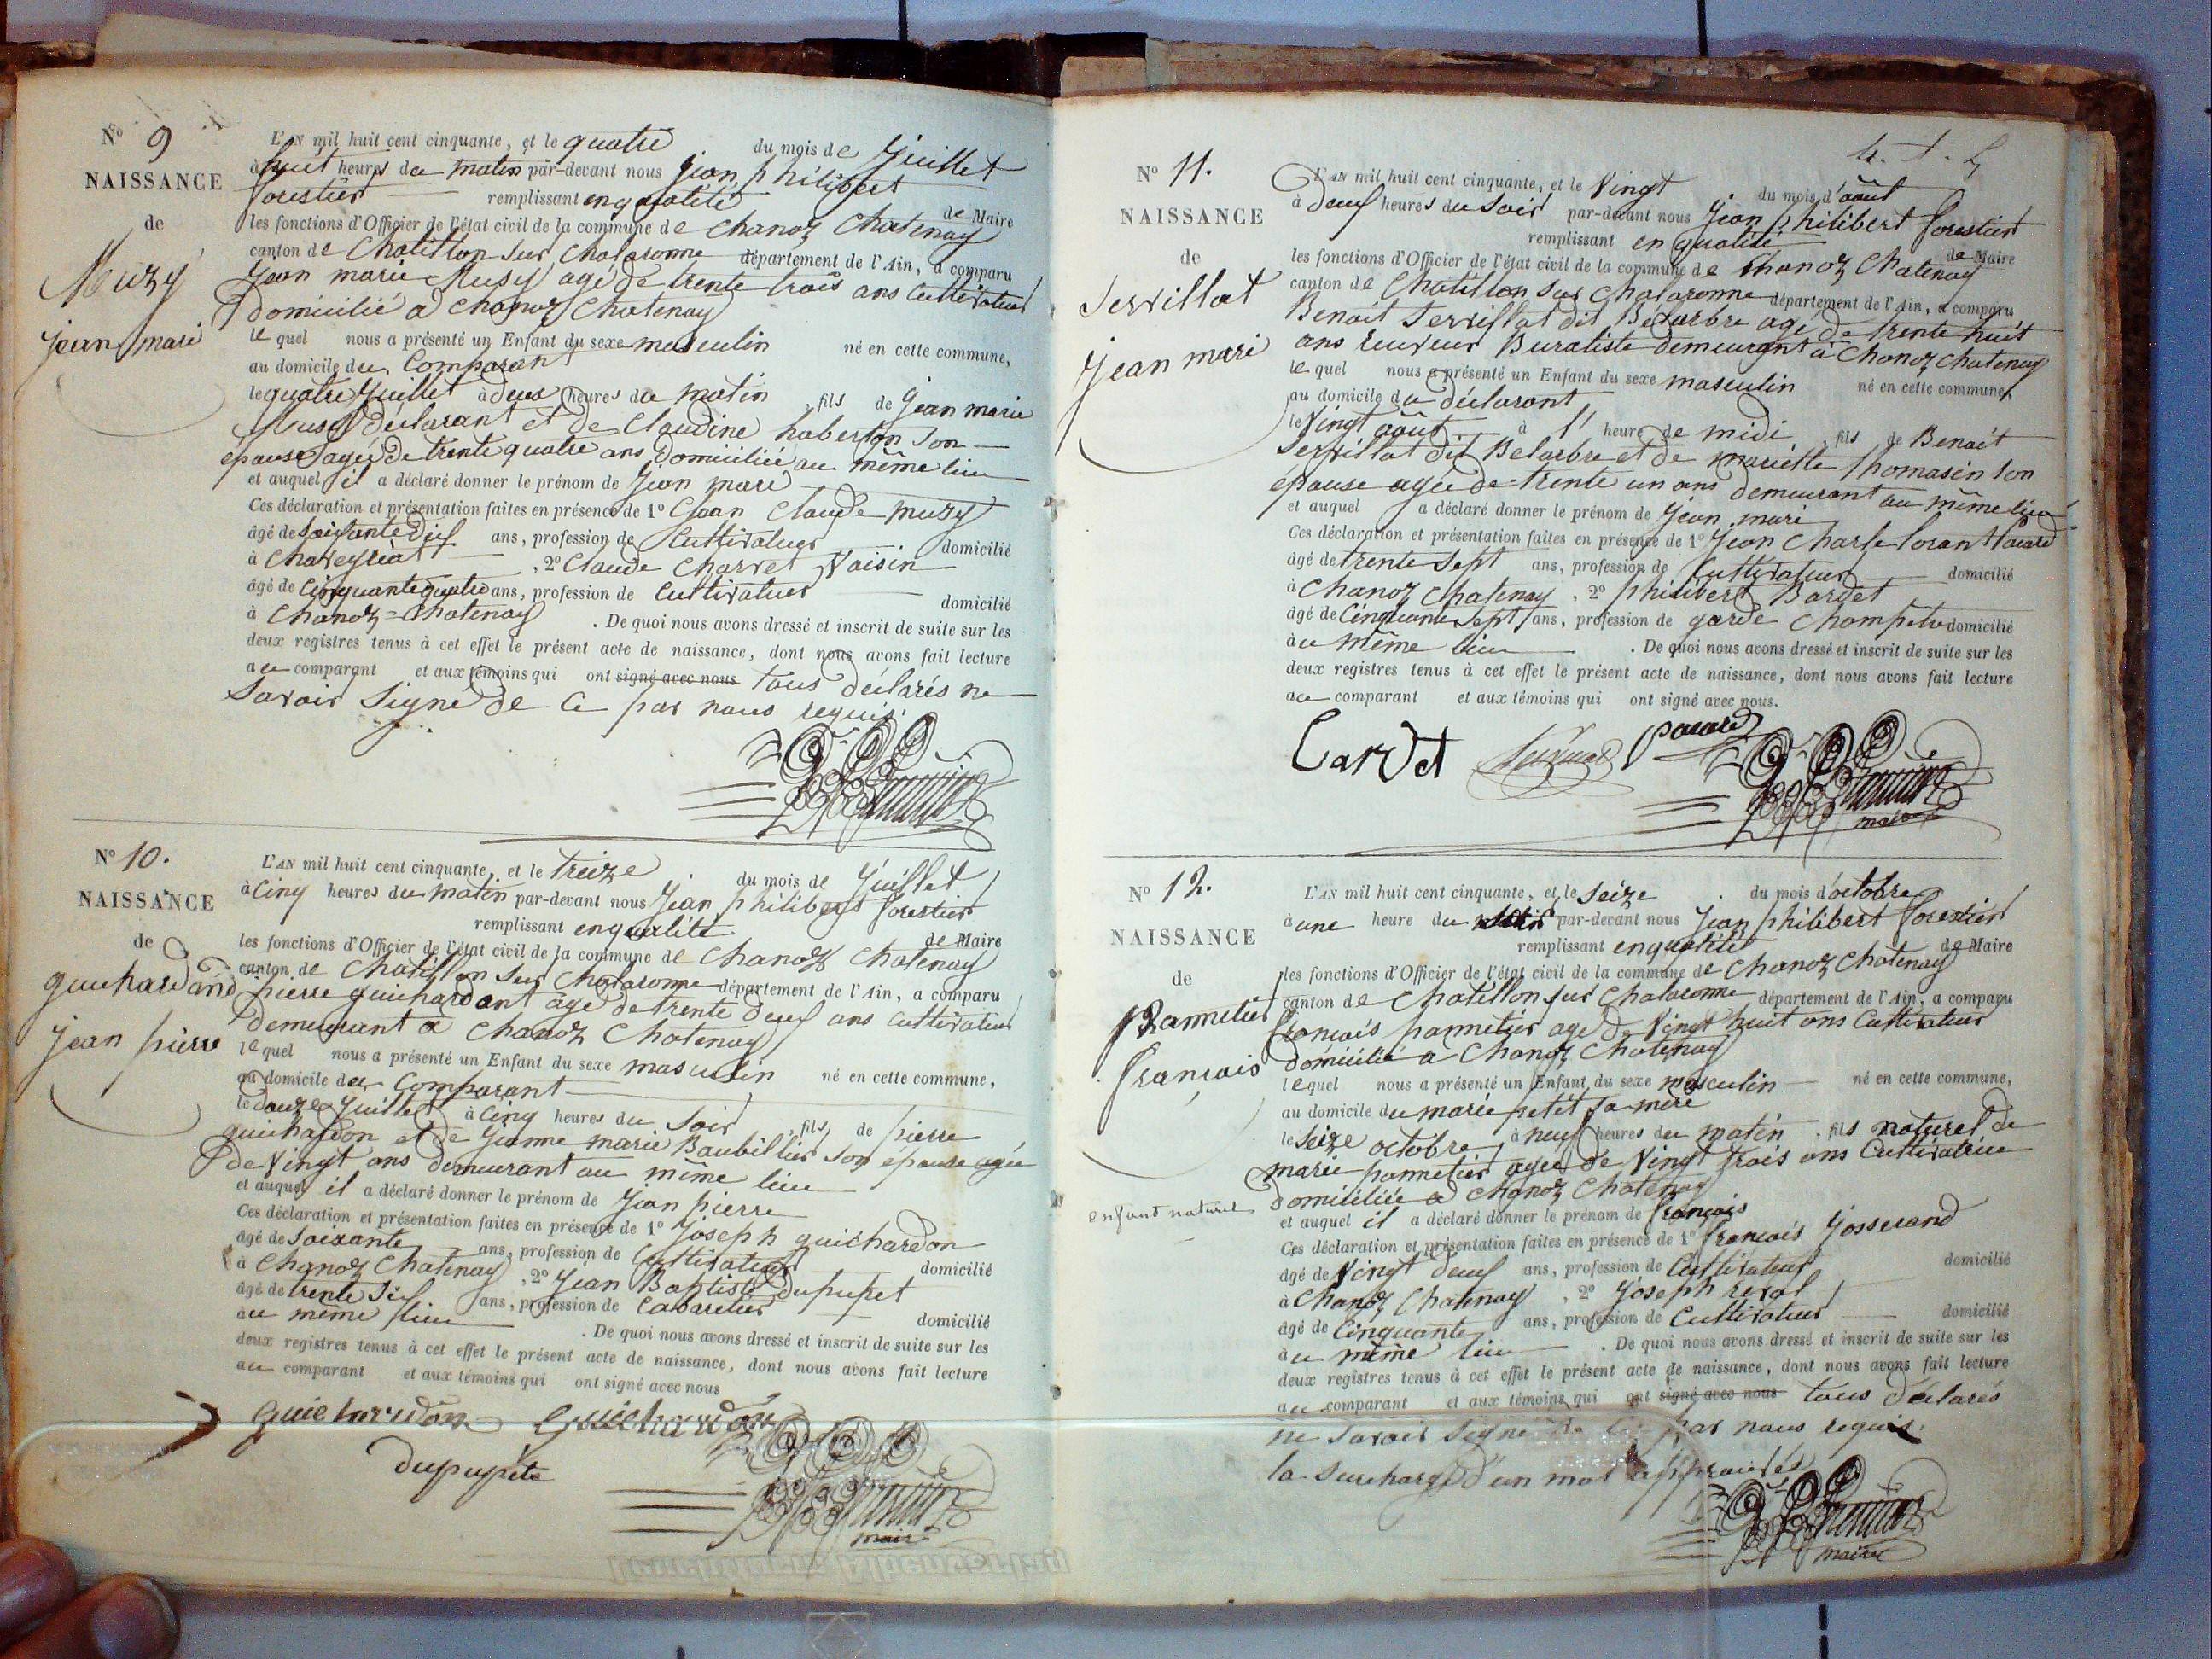 Nº 9
NAISSANCE
de
Muzy
jean mari
L'AN mil huit cent cinquante, et le quatre du mois de Juillet
à huit heures du matin par-devant nous jean philibert
forestier remplissant en qualité de Maire
les fonctions d'Officier de l'état civil de la commune de Chanoz Chatenay
canton de Chatillon sur Chalaronne département de l'Ain, a comparu
Jean marie Musy agé de trente trois ans Cultivateur
domicilié a Chanoz Chatenay
le quel nous a présenté un Enfant du sexe masculin né en cette commune,
au domicile du Comparant
le quatre Juillet à deux heures du matin, fils de jean marie
Musy déclarant et de Claudine haberton son
épouse agée de trente quatre ans domiciliée au même lieu
et auquel il a déclaré donner le prénom de Jean mari
Ces déclaration et présentation faites en présence de 1º Jean Claude muzy
âgé de soixante dix ans, profession de Cultivateur domicilié
à Chaveyriat, 2º Claude Charvet Voisin
âgé de Cinquante quatre ans, profession de Cultivateur domicilié
à Chanoz=Chatenay. De quoi nous avons dressé et inscrit de suite sur les
deux registres tenus à cet effet le présent acte de naissance, dont nous avons fait lecture
au comparant et aux témoins qui ont signé avec nous tous déclarés ne
savoir signé de ce par nous requis.
Nº 10.
NAISSANCE
de
guichardand
jean pierre
L'AN mil huit cent cinquante, et le treize du mois de Juillet
à Cinq heures du matin par-devant nous Jean philibert forestier
remplissant en qualité de Maire
les fonctions d'Officier de l'état civil de la commune de Chanoz Chatenay
canton de Chatillon sur Chalaronne département de l'Ain, a comparu
pierre guichardant agé de trente deux ans Cultivateur
demeurant a Chanoz Chatenay
le quel nous a présenté un Enfant du sexe masculin né en cette commune,
au domicile du Comparant
le douze Juillet à Cinq heures du soir, fils de pierre
guichardon et de Jeanne marie Baubillier son épouse agée
de Vingt ans demeurant au même lieu
et auquel il a déclaré donner le prénom de Jean pierre
Ces déclaration et présentation faites en présence de 1º Joseph guichardon
âgé de soixante ans, profession de Cultivateur domicilié
à Chanoz Chatenay, 2º Jean Baptiste dupupet
âgé de trente six ans, profession de Cabaretier domicilié
au même lieu. De quoi nous avons dressé et inscrit de suite sur les
deux registres tenus à cet effet le présent acte de naissance, dont nous avons fait lecture
au comparant et aux témoins qui ont signé avec nous
Guichardon Guichardon
dupupete
maire
Nº 11.
NAISSANCE
de
Servillat
jean mari
L'AN mil huit cent cinquante, et le Vingt du mois d'août
à deux heures du soir par-devant nous Jean philibert forestier
remplissant en qualité de Maire
les fonctions d'Officier de l'état civil de la commune de Chanoz Chatenay
canton de Chatillon sur Chalaronne département de l'Ain, a comparu
Benoit Servillat dit Belarbre agé de trente huit
ans receveur Buraliste demeurant a Chanoz chatenay
le quel nous a présenté un Enfant du sexe masculin né en cette commune,
au domicile du déclarant
le Vingt août à l' heure de midi, fils de Benoit
Servillat dit Belarbre et de mariette thomasin son
épouse agée de trente un ans demeurant au même lieu
et auquel a déclaré donner le prénom de Jean mari
Ces déclaration et présentation faites en présence de 1º Jean Charle
âgé de trente sept ans, profession de Cultivateur domicilié
à Chanoz Chatenay, 2º philibert Bardet
âgé de Cinquante sept ans, profession de garde Champetre domicilié
au même lieu. De quoi nous avons dressé et inscrit de suite sur les
deux registres tenus à cet effet le présent acte de naissance, dont nous avons fait lecture
au comparant et aux témoins qui ont signé avec nous.
maire
Nº 12.
NAISSANCE
de
Pannetier
francois
enfant naturel
L'AN mil huit cent cinquante, et le seize du mois d'octobre
à une heure du soir par-devant nous Jean philibert forestier
remplissant en qualité de Maire
les fonctions d'Officier de l'état civil de la commune de Chanoz Chatenay
canton de Chatillon sur Chalaronne département de l'Ain, a comparu
francois pannetier agé de Vingt huit ans Cultivateur
domicilié a Chanoz Chatenay
lequel nous a présenté un Enfant du sexe masculin né en cette commune,
au domicile du marie petit sa mère
le seize octobre à neuf heures du matin, fils naturel de
marie pannetier agée de Vingt trois ans Cultivatrice
domiciliée a Chanoz Chatenay
et auquel il a déclaré donner le prénom de francois
Ces déclaration et présentation faites en présence de 1º francois Josserand
âgé de Vingt deux ans, profession de Cultivateur domicilié
à Chanoz Chatenay, 2º Joseph reval
âgé de Cinquante ans, profession de Cultivateur domicilié
au même lieu. De quoi nous avons dressé et inscrit de suite sur les
deux registres tenus à cet effet le présent acte de naissance, dont nous avons fait lecture
au comparant et aux témoins qui ont signé avec nous tous déclarés
ne savoir signé de ce par nous requis.
la surcharge d'un mot
maire